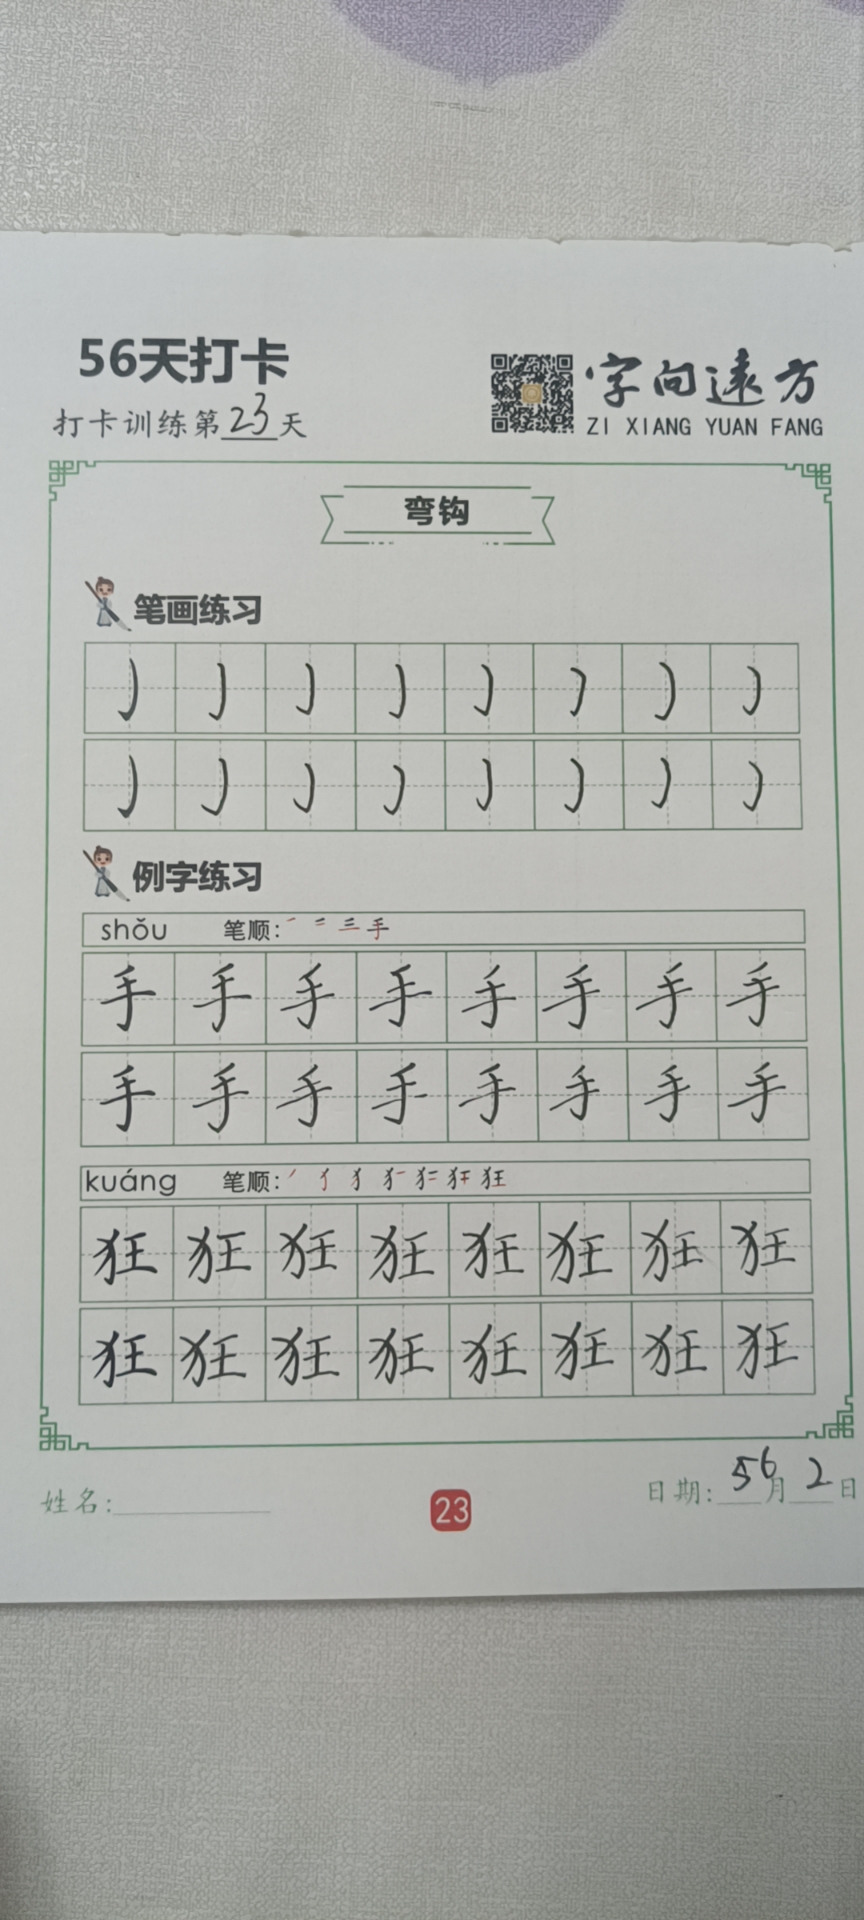 56天打卡
打卡训练第23天
字向远方
ZI XIANG YUAN FANG
弯钩
笔画练习
㇁ ㇁ ㇁ ㇁ ㇁ ㇁ ㇁ ㇁
㇁ ㇁ ㇁ ㇁ ㇁ ㇁ ㇁ ㇁
例字练习
shǒu 笔顺: 一 二 三 手
手 手 手 手 手 手 手 手
手 手 手 手 手 手 手 手
kuáng 笔顺: 狂
狂 狂 狂 狂 狂 狂 狂 狂
狂 狂 狂 狂 狂 狂 狂 狂
姓名:
23
日期: 56月2日